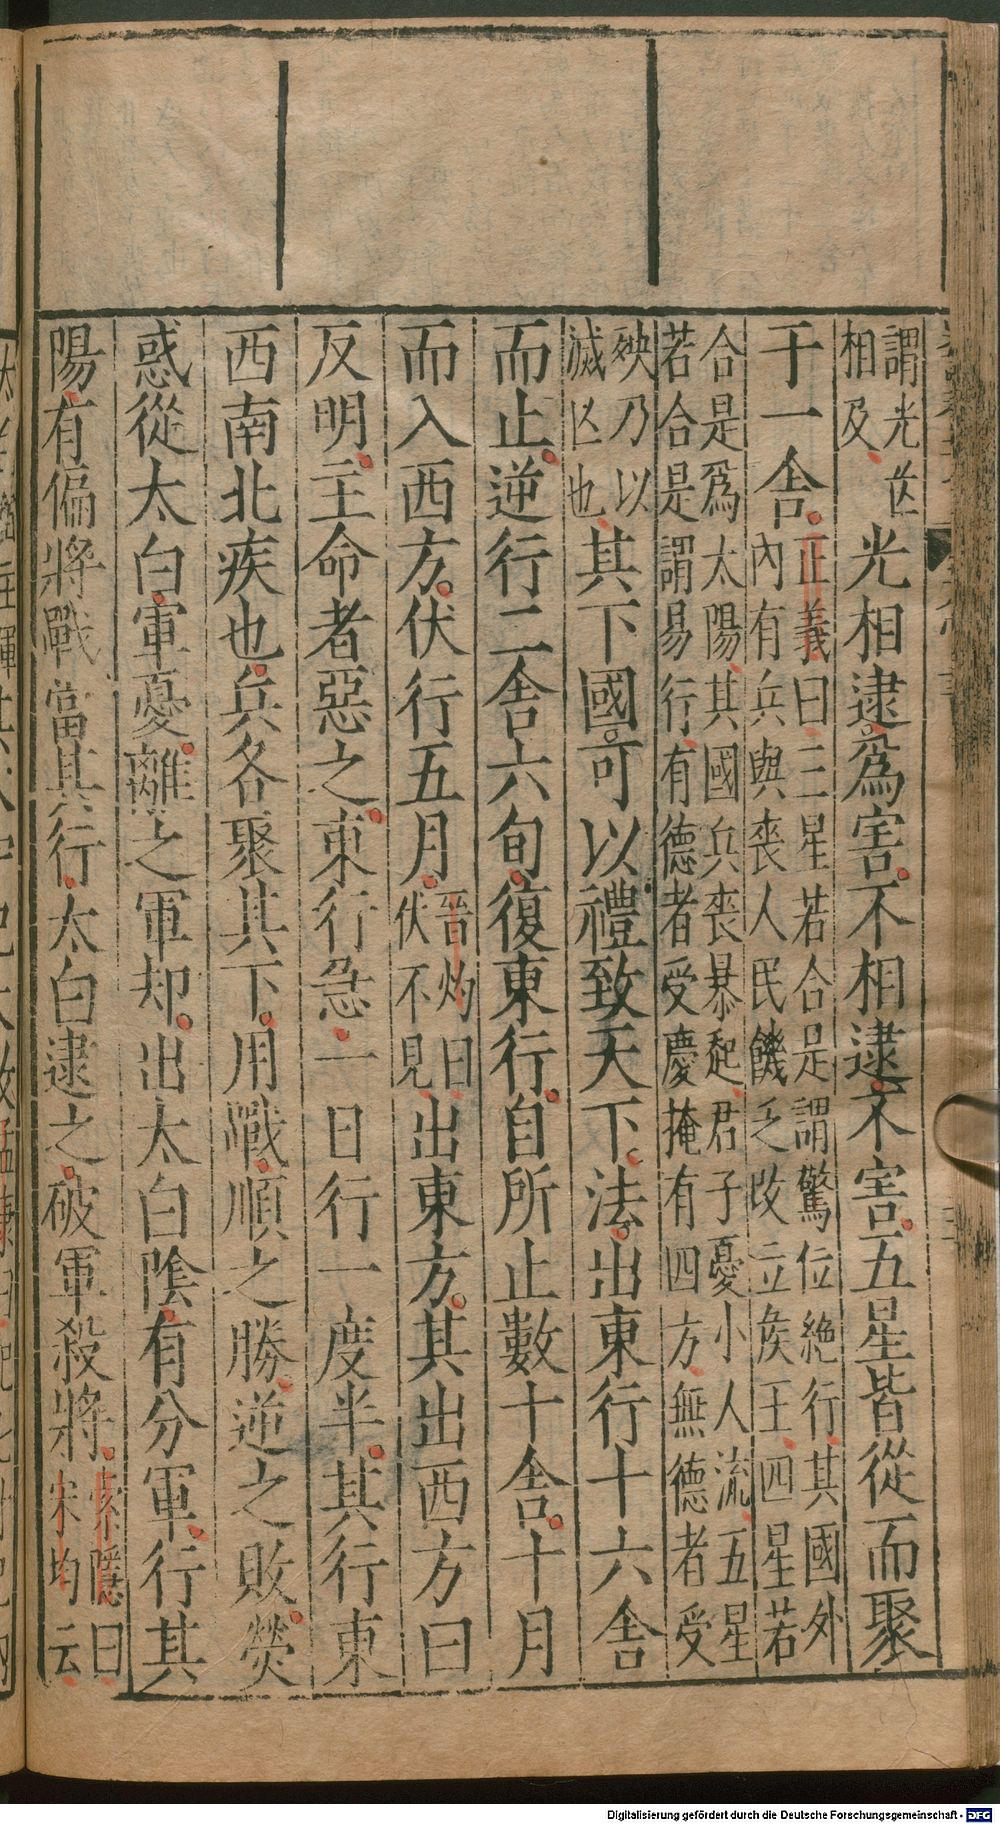 謂光芒
相及
光相逮爲害不相逮不害五星皆從而聚
于一舎
正義曰三星若合是謂驚位絶行其國外
內有兵與喪人民饑乏改立矦王四星若
合是爲太陽其國兵喪暴起君子憂小人流五星
若合是謂易行有德者受慶掩有四方無德者受
殃乃以
滅凶也
其下國可以禮致天下法出東行十六舍
而止逆行二舍六旬復東行自所止數十舍十月
而入西方伏行五月
晉灼曰
伏不見
出東方其出西方曰
反明主命者惡之東行急一日行一度半其行東
西南北疾也兵各聚其下用戰順之勝逆之敗熒
惑從太白軍憂離之軍却出太白陰有分軍行其
陽有偏將戰當其行太白逮之破軍殺將
索隱曰
宋均云
Digitalisierung gefördert durch die Deutsche Forschungsgemeinschaft - DFG